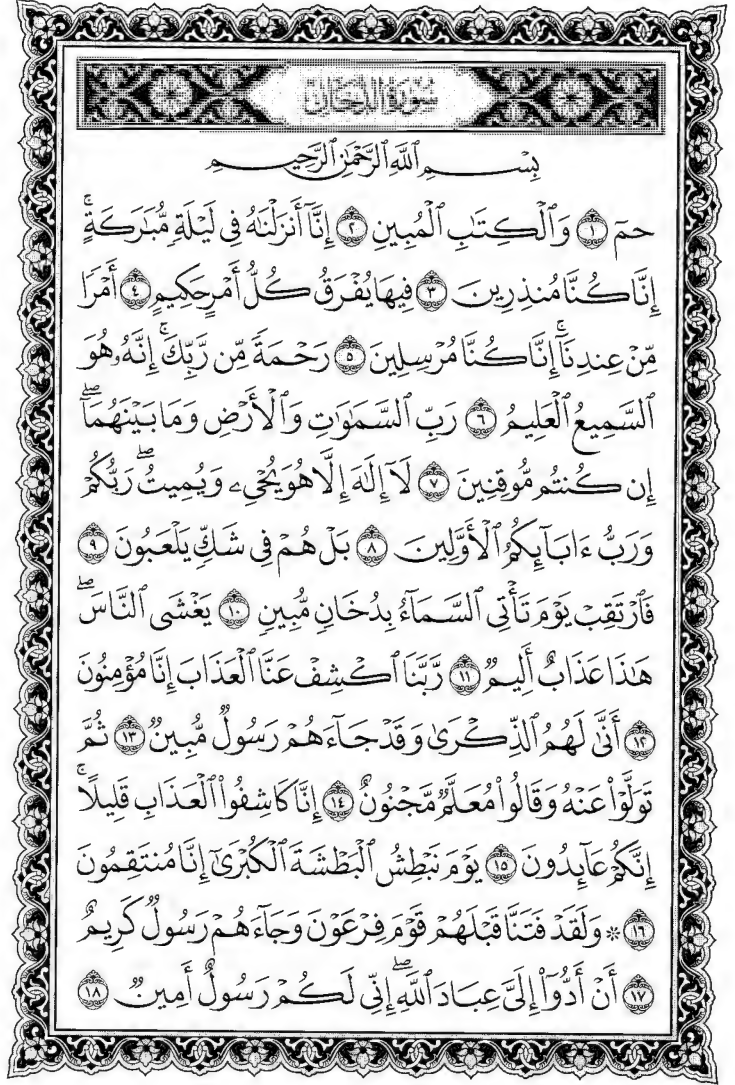 سُورَةُ الدُّخَانِ
بِسْمِ ٱللَّهِ ٱلرَّحْمَٰنِ ٱلرَّحِيمِ
حمٓ ۝١ وَٱلْكِتَٰبِ ٱلْمُبِينِ ۝٢ إِنَّآ أَنزَلْنَٰهُ فِى لَيْلَةٍ مُّبَٰرَكَةٍۚ
إِنَّا كُنَّا مُنذِرِينَ ۝٣ فِيهَا يُفْرَقُ كُلُّ أَمْرٍ حَكِيمٍ ۝٤ أَمْرًا
مِّنْ عِندِنَآۚ إِنَّا كُنَّا مُرْسِلِينَ ۝٥ رَحْمَةً مِّن رَّبِّكَۚ إِنَّهُۥ هُوَ
ٱلسَّمِيعُ ٱلْعَلِيمُ ۝٦ رَبِّ ٱلسَّمَٰوَٰتِ وَٱلْأَرْضِ وَمَا بَيْنَهُمَآۖ
إِن كُنتُم مُّوقِنِينَ ۝٧ لَآ إِلَٰهَ إِلَّا هُوَ يُحْىِۦ وَيُمِيتُۖ رَبُّكُمْ
وَرَبُّ ءَابَآئِكُمُ ٱلْأَوَّلِينَ ۝٨ بَلْ هُمْ فِى شَكٍّ يَلْعَبُونَ ۝٩
فَٱرْتَقِبْ يَوْمَ تَأْتِى ٱلسَّمَآءُ بِدُخَانٍ مُّبِينٍ ۝١٠ يَغْشَى ٱلنَّاسَۖ
هَٰذَا عَذَابٌ أَلِيمٌ ۝١١ رَّبَّنَا ٱكْشِفْ عَنَّا ٱلْعَذَابَ إِنَّا مُؤْمِنُونَ
۝١٢ أَنَّىٰ لَهُمُ ٱلذِّكْرَىٰ وَقَدْ جَآءَهُمْ رَسُولٌ مُّبِينٌ ۝١٣ ثُمَّ
تَوَلَّوْا۟ عَنْهُ وَقَالُوا۟ مُعَلَّمٌ مَّجْنُونٌ ۝١٤ إِنَّا كَاشِفُوا۟ ٱلْعَذَابِ قَلِيلًاۚ
إِنَّكُمْ عَآئِدُونَ ۝١٥ يَوْمَ نَبْطِشُ ٱلْبَطْشَةَ ٱلْكُبْرَىٰٓ إِنَّا مُنتَقِمُونَ
۝١٦ ۞ وَلَقَدْ فَتَنَّا قَبْلَهُمْ قَوْمَ فِرْعَوْنَ وَجَآءَهُمْ رَسُولٌ كَرِيمٌ
۝١٧ أَنْ أَدُّوٓا۟ إِلَىَّ عِبَادَ ٱللَّهِۖ إِنِّى لَكُمْ رَسُولٌ أَمِينٌ ۝١٨